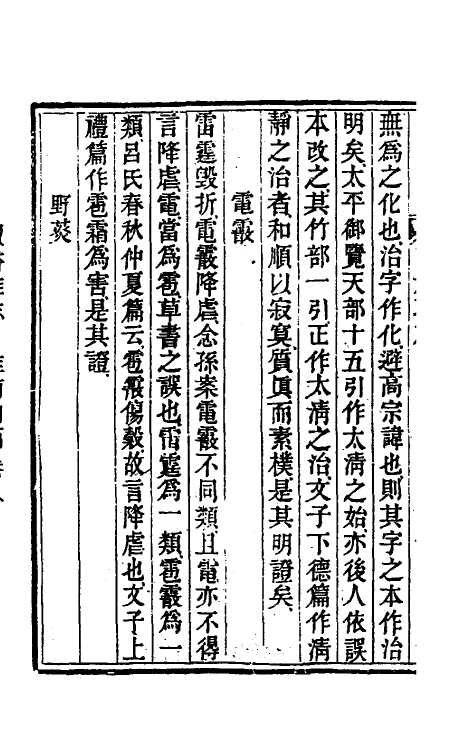 無爲之化也治字作化避高宗諱也則其字之本作治
明矣太平御覽天部十五引作太淸之始亦後人依誤
本改之其竹部一引正作太淸之治文子下德篇作淸
靜之治者和順以寂寞質眞而素樸是其明證矣
電霰
雷霆毀折電霰降虐念孫案電霰不同類且電亦不得
言降虐電當爲雹草書之誤也雷霆爲一類雹霰爲一
類呂氏春秋仲夏篇云雹霰傷穀故言降虐也文子上
禮篇作雹霜爲害是其證
野莢